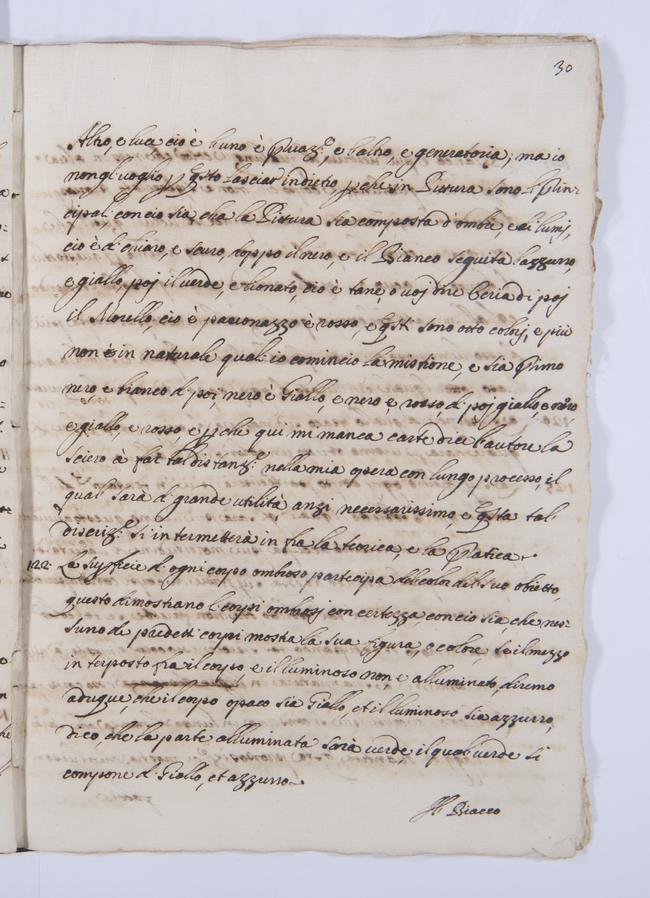 30
Altro, e luce cioè l'uno è privaz.e, e l'altro, e generatoria; ma io
non gli voglio p q.sto lasciar indietro, p che in Pittura sono li prin-
cipali, con cio sia cha la Pittura sia composta d'ombre, e di lumi,
cio è di chiaro, e scuro, doppo il nero, e il Bianco seguita l'azzurro,
e giallo, poj il verde, e lionato, cio è tanè, o voj dire beria di poj
il Morello, cio è paunonazzo è rosso, e q.sti sono otto colorj, e piu
non è in naturale quali io comincio la mistione, e sia primo
nero, e bianco di poi, nero è Giallo, e nero, e rosso, di poj giallo, e nero
e giallo, e rosso, e p che qui mi manca carte dice l'autore la
sciero à far tal distanz.e nella mia opera con lungo processo, il
qual sarà di grande utilità, anzi necessarissimo, e q.sta tal
discriz.e si intermetterà in fra la teorica, e la Pratica.
122. La sup.ficie di ogni corpo ombroso partecipa del color del suo obietto,
questo dimostrano li corpi ombrosj con certezza con cio sia, che nes-
suno de predetti corpi mostra la sua figura, o colore se il mezzo
interposto fra il corpo, e il luminoso non, e alluminato, diremo
aduque che il corpo opaco sia Giallo, et il luminoso sia azzurro,
dico, che la parte alluminata sarà verde il qual verde si
compone di Giallo, et azzurro.
Il Biacco